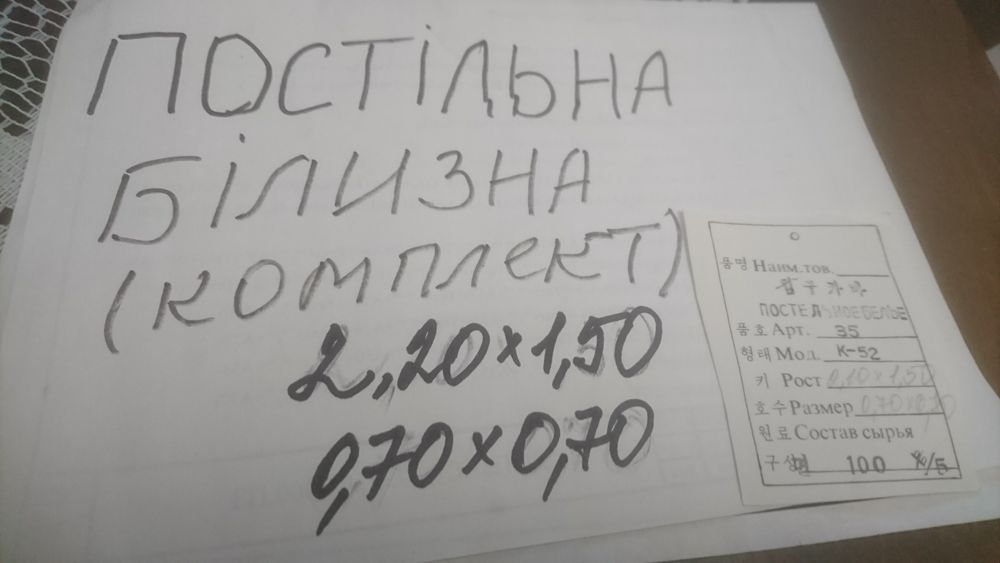 ПОСТІЛЬНА
БІЛИЗНА
(КОМПЛЕКТ)
2,20×1,50
0,70×0,70
품명 Наим.тов.
ПОСТЕЛЬНОЕ БЕЛЬЕ
품호 Арт. 35
형태 Мод. К-52
키 Рост 2,10×1,50
호수 Размер 0,70×0,70
원료 Состав сырья
100 %